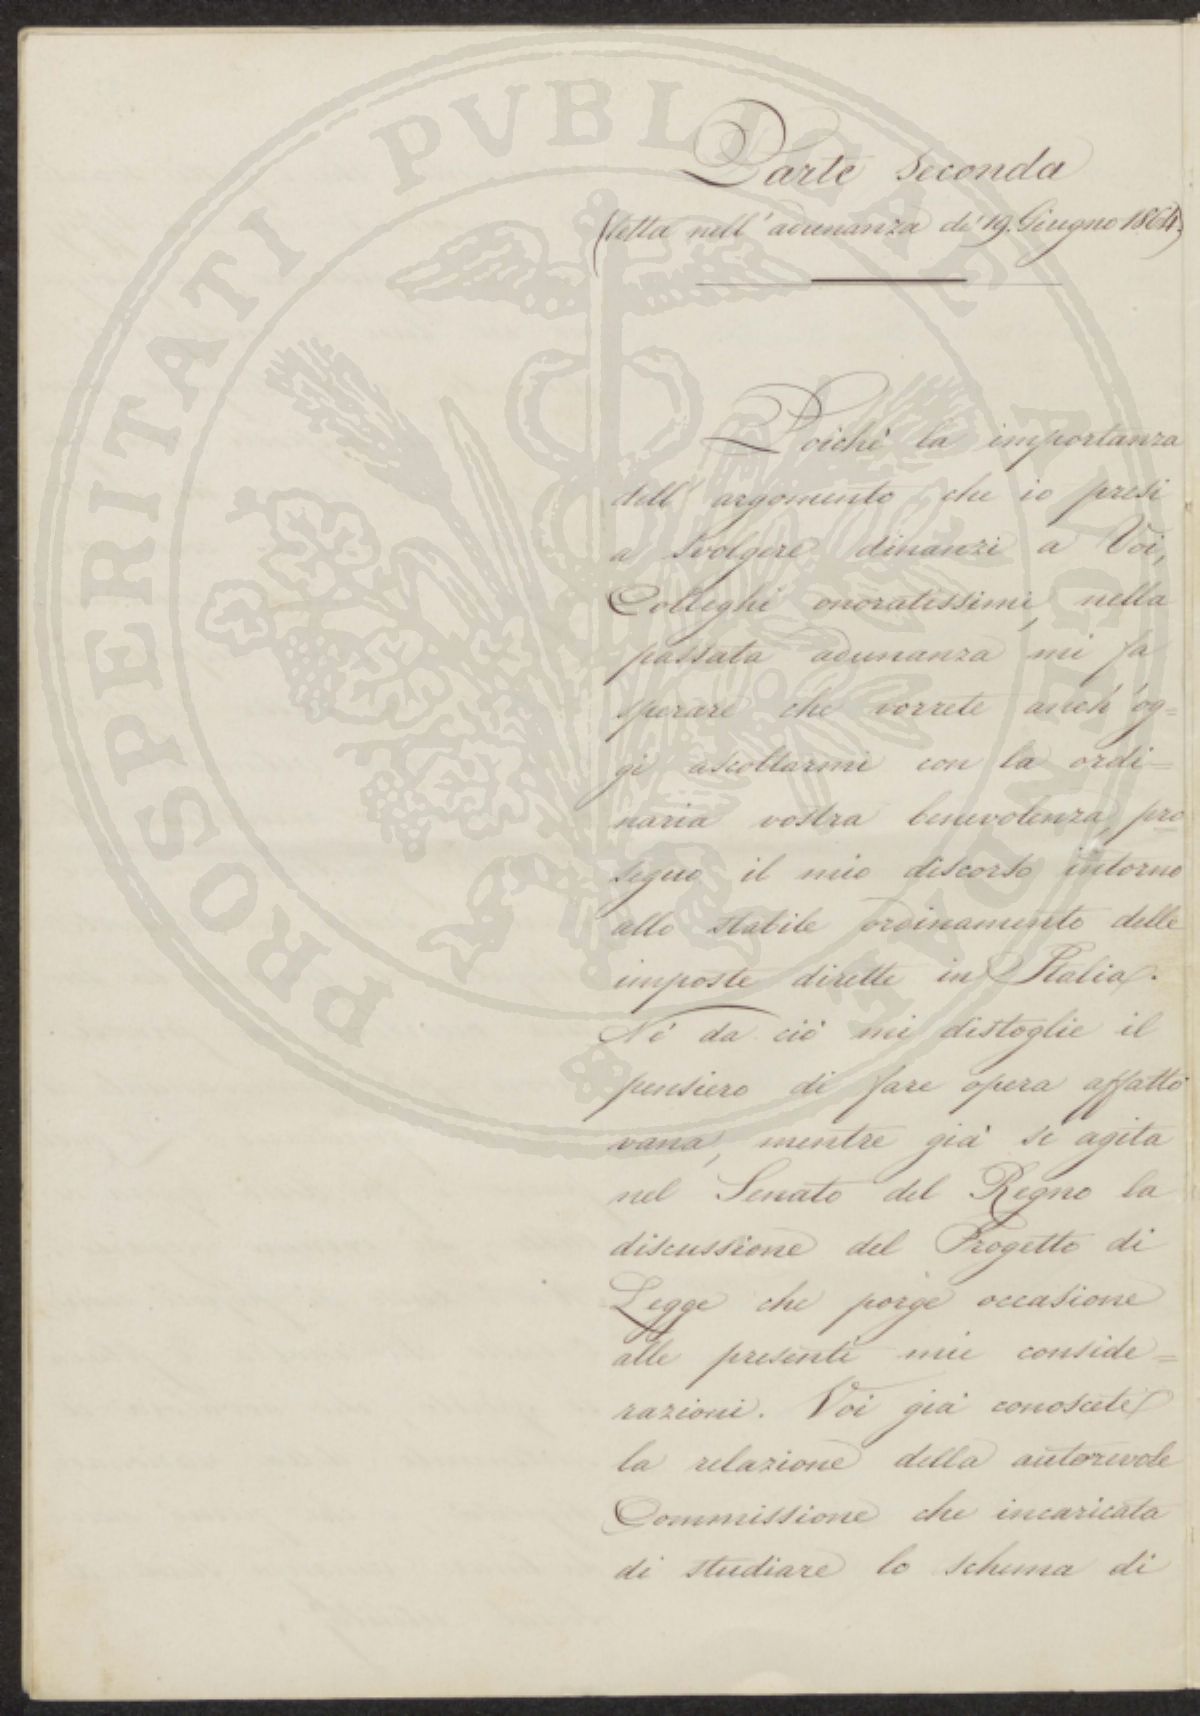 PROSPERITATI PVBLICAE AVGENDAE
Parte Seconda
(letta nell' adunanza de' 19. Giugno 1864.)
Poichè la importanza
dell' argomento, che io presi
a svolgere dinanzi a Voi,
Colleghi onoratissimi, nella
passata adunanza mi fa
sperare che vorrete anch' og=
gi ascoltarmi con la ordi=
naria vostra benevolenza, pro
seguo il mio discorso intorno
allo stabile ordinamento delle
imposte dirette in Italia.
Nè da ciò mi distoglie il
pensiero di fare opera affatto
vana, mentre già si agita
nel Senato del Regno la
discussione del Progetto di
Legge che porge occasione
alle presenti mie conside=
razioni. Voi già conoscete
la relazione della autorevole
Commissione che incaricata
di studiare lo schema di